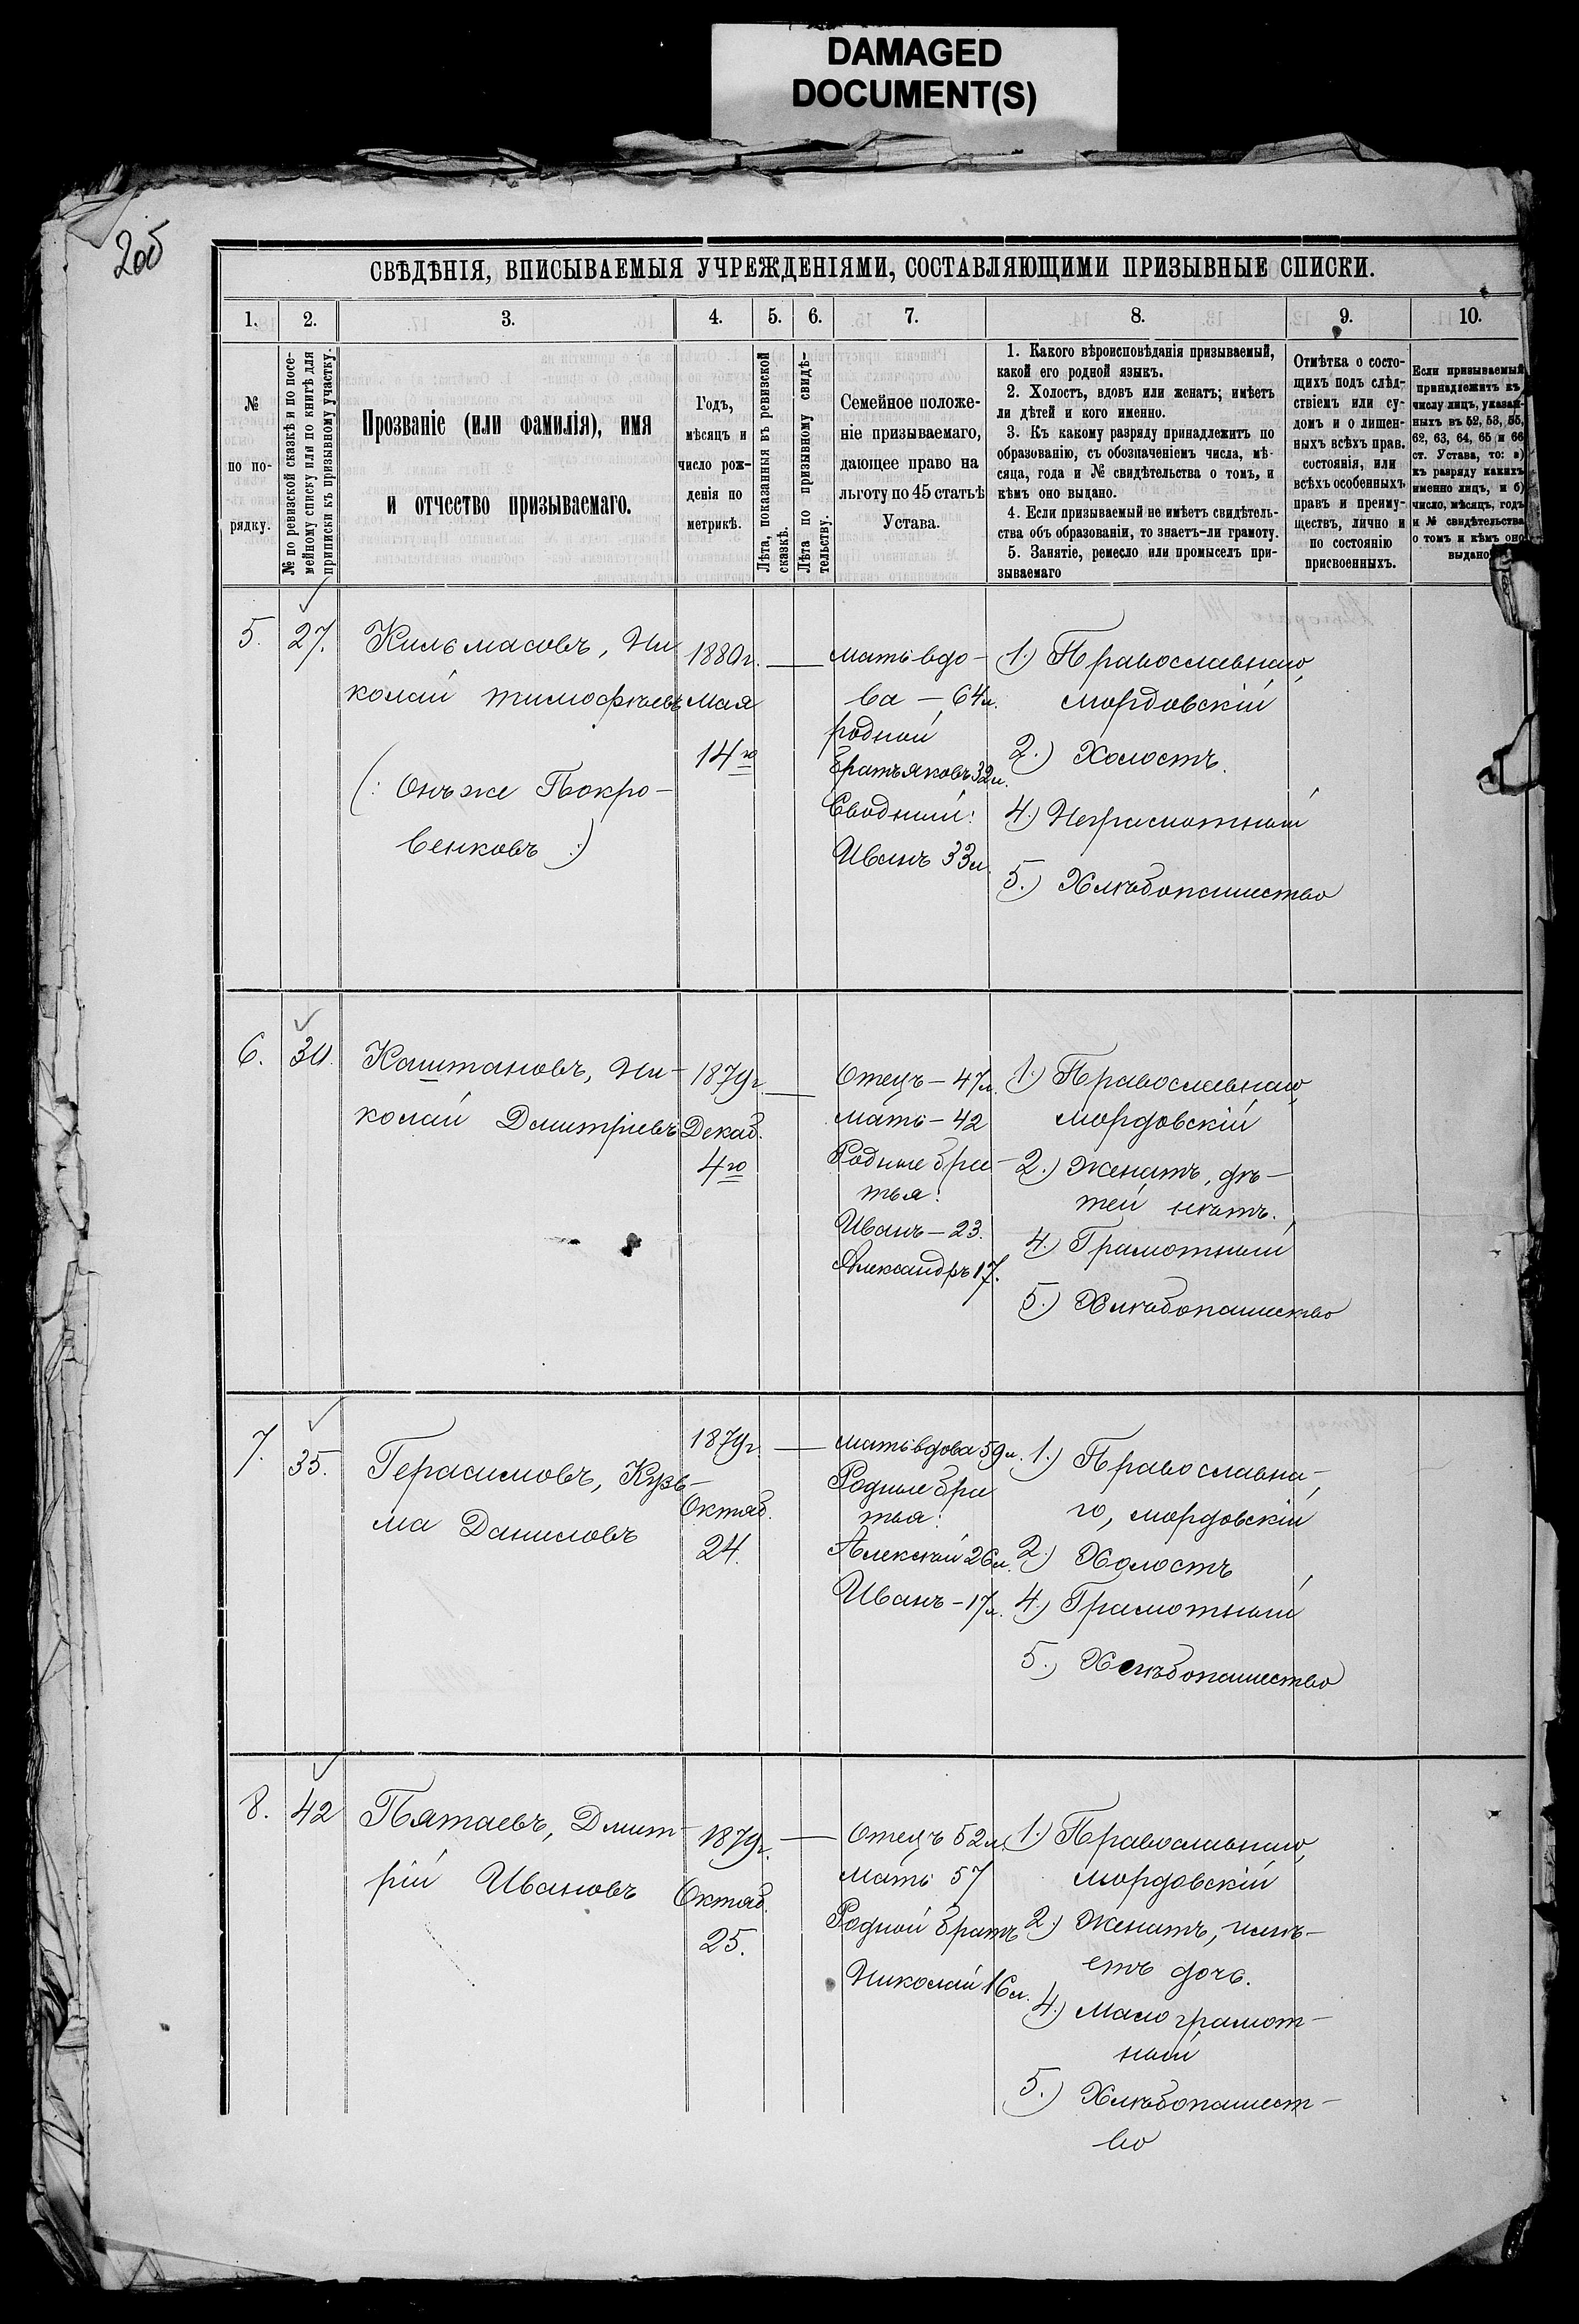 DAMAGED
DOCUMENT(S)
205
СВѢДѢНІЯ, ВПИСЫВАЕМЫЯ УЧРЕЖДЕНІЯМИ, СОСТАВЛЯЮЩИМИ ПРИЗЫВНЫЕ СПИСКИ.
1. 2. 3. 4. 5. 6. 7. 8. 9. 10.
№
по по-
рядку.
№ по ревизской сказкѣ и по посе-
мейному списку или по книгѣ для
приписки къ призывному участку.
Прозваніе (или фамилія), имя
и отчество призываемаго.
Годъ,
мѣсяцъ и
число рож-
денія по
метрикѣ.
Лѣта, показанныя въ ревизской
сказкѣ.
Лѣта по призывному свидѣ-
тельству.
Семейное положе-
ніе призываемаго,
дающее право на
льготу по 45 статьѣ
Устава.
1. Какого вѣроисповѣданія призываемый,
какой его родной языкъ.
2. Холостъ, вдовъ или женатъ; имѣетъ
ли дѣтей и кого именно.
3. Къ какому разряду принадлежитъ по
образованію, съ обозначеніемъ числа, мѣ-
сяца, года и № свидѣтельства о томъ, и
кѣмъ оно выдано.
4. Если призываемый не имѣетъ свидѣтель-
ства объ образованіи, то знаетъ-ли грамоту.
5. Занятіе, ремесло или промыселъ при-
зываемаго
Отмѣтка о состо-
ящихъ подъ слѣд-
ствіемъ или су-
домъ и о лишен-
ныхъ всѣхъ прав.
состоянія, или
всѣхъ особенныхъ
правъ и преиму-
ществъ, лично и
по состоянію
присвоенныхъ.
Если призываемый
принадлежитъ къ
числу лицъ, указан-
ныхъ въ 52, 53, 55,
62, 63, 64, 65 и 66
ст. Устава, то: а)
къ разряду какихъ
именно лицъ, и б)
число, мѣсяцъ, годъ
и № свидѣтельства
о томъ и кѣмъ оно
выдано
5. 27.
Кильмасовъ, Ни
колай Тимофѣевъ
(: Онъ же Покро-
венковъ :)
1880г.
Мая
14го
мать вдо-
ва — 64л.
родной
братъ Яковъ 32л.
Сводный:
Иванъ 33л.
1.) Православнаго,
мордовскій
2.) Холостъ.
4.) Неграмотный
5.) Хлѣбопашество
6. 30.
Каштановъ, Ни-
колай Дмитріевъ
1879г.
Декаб.
4го
Отецъ — 47л.
мать — 42
Родные бра-
тья:
Иванъ — 23.
Александръ 17.
1.) Православнаго,
мордовскій
2.) Женатъ, дѣ-
тей нѣтъ.
4.) Грамотный
5.) Хлѣбопашество
7. 35.
Герасимовъ, Кузь-
ма Даниловъ
1879г.
Октяб.
24.
мать вдова 59л.
Родные бра
тья:
Алексѣй 26л.
Иванъ — 17л.
1.) Православна-
го, мордовскій
2.) Холостъ
4.) Грамотный
5.) Хлѣбопашество
8. 42
Пятаевъ, Дмит-
рій Ивановъ
1879г.
Октяб.
25.
Отецъ 52л.
мать 57
Родной братъ
Николай 16л.
1.) Православнаго,
мордовскій
2.) Женатъ, имѣ-
етъ дочь.
4.) Мало грамот-
ный
5.) Хлѣбопашест-
во